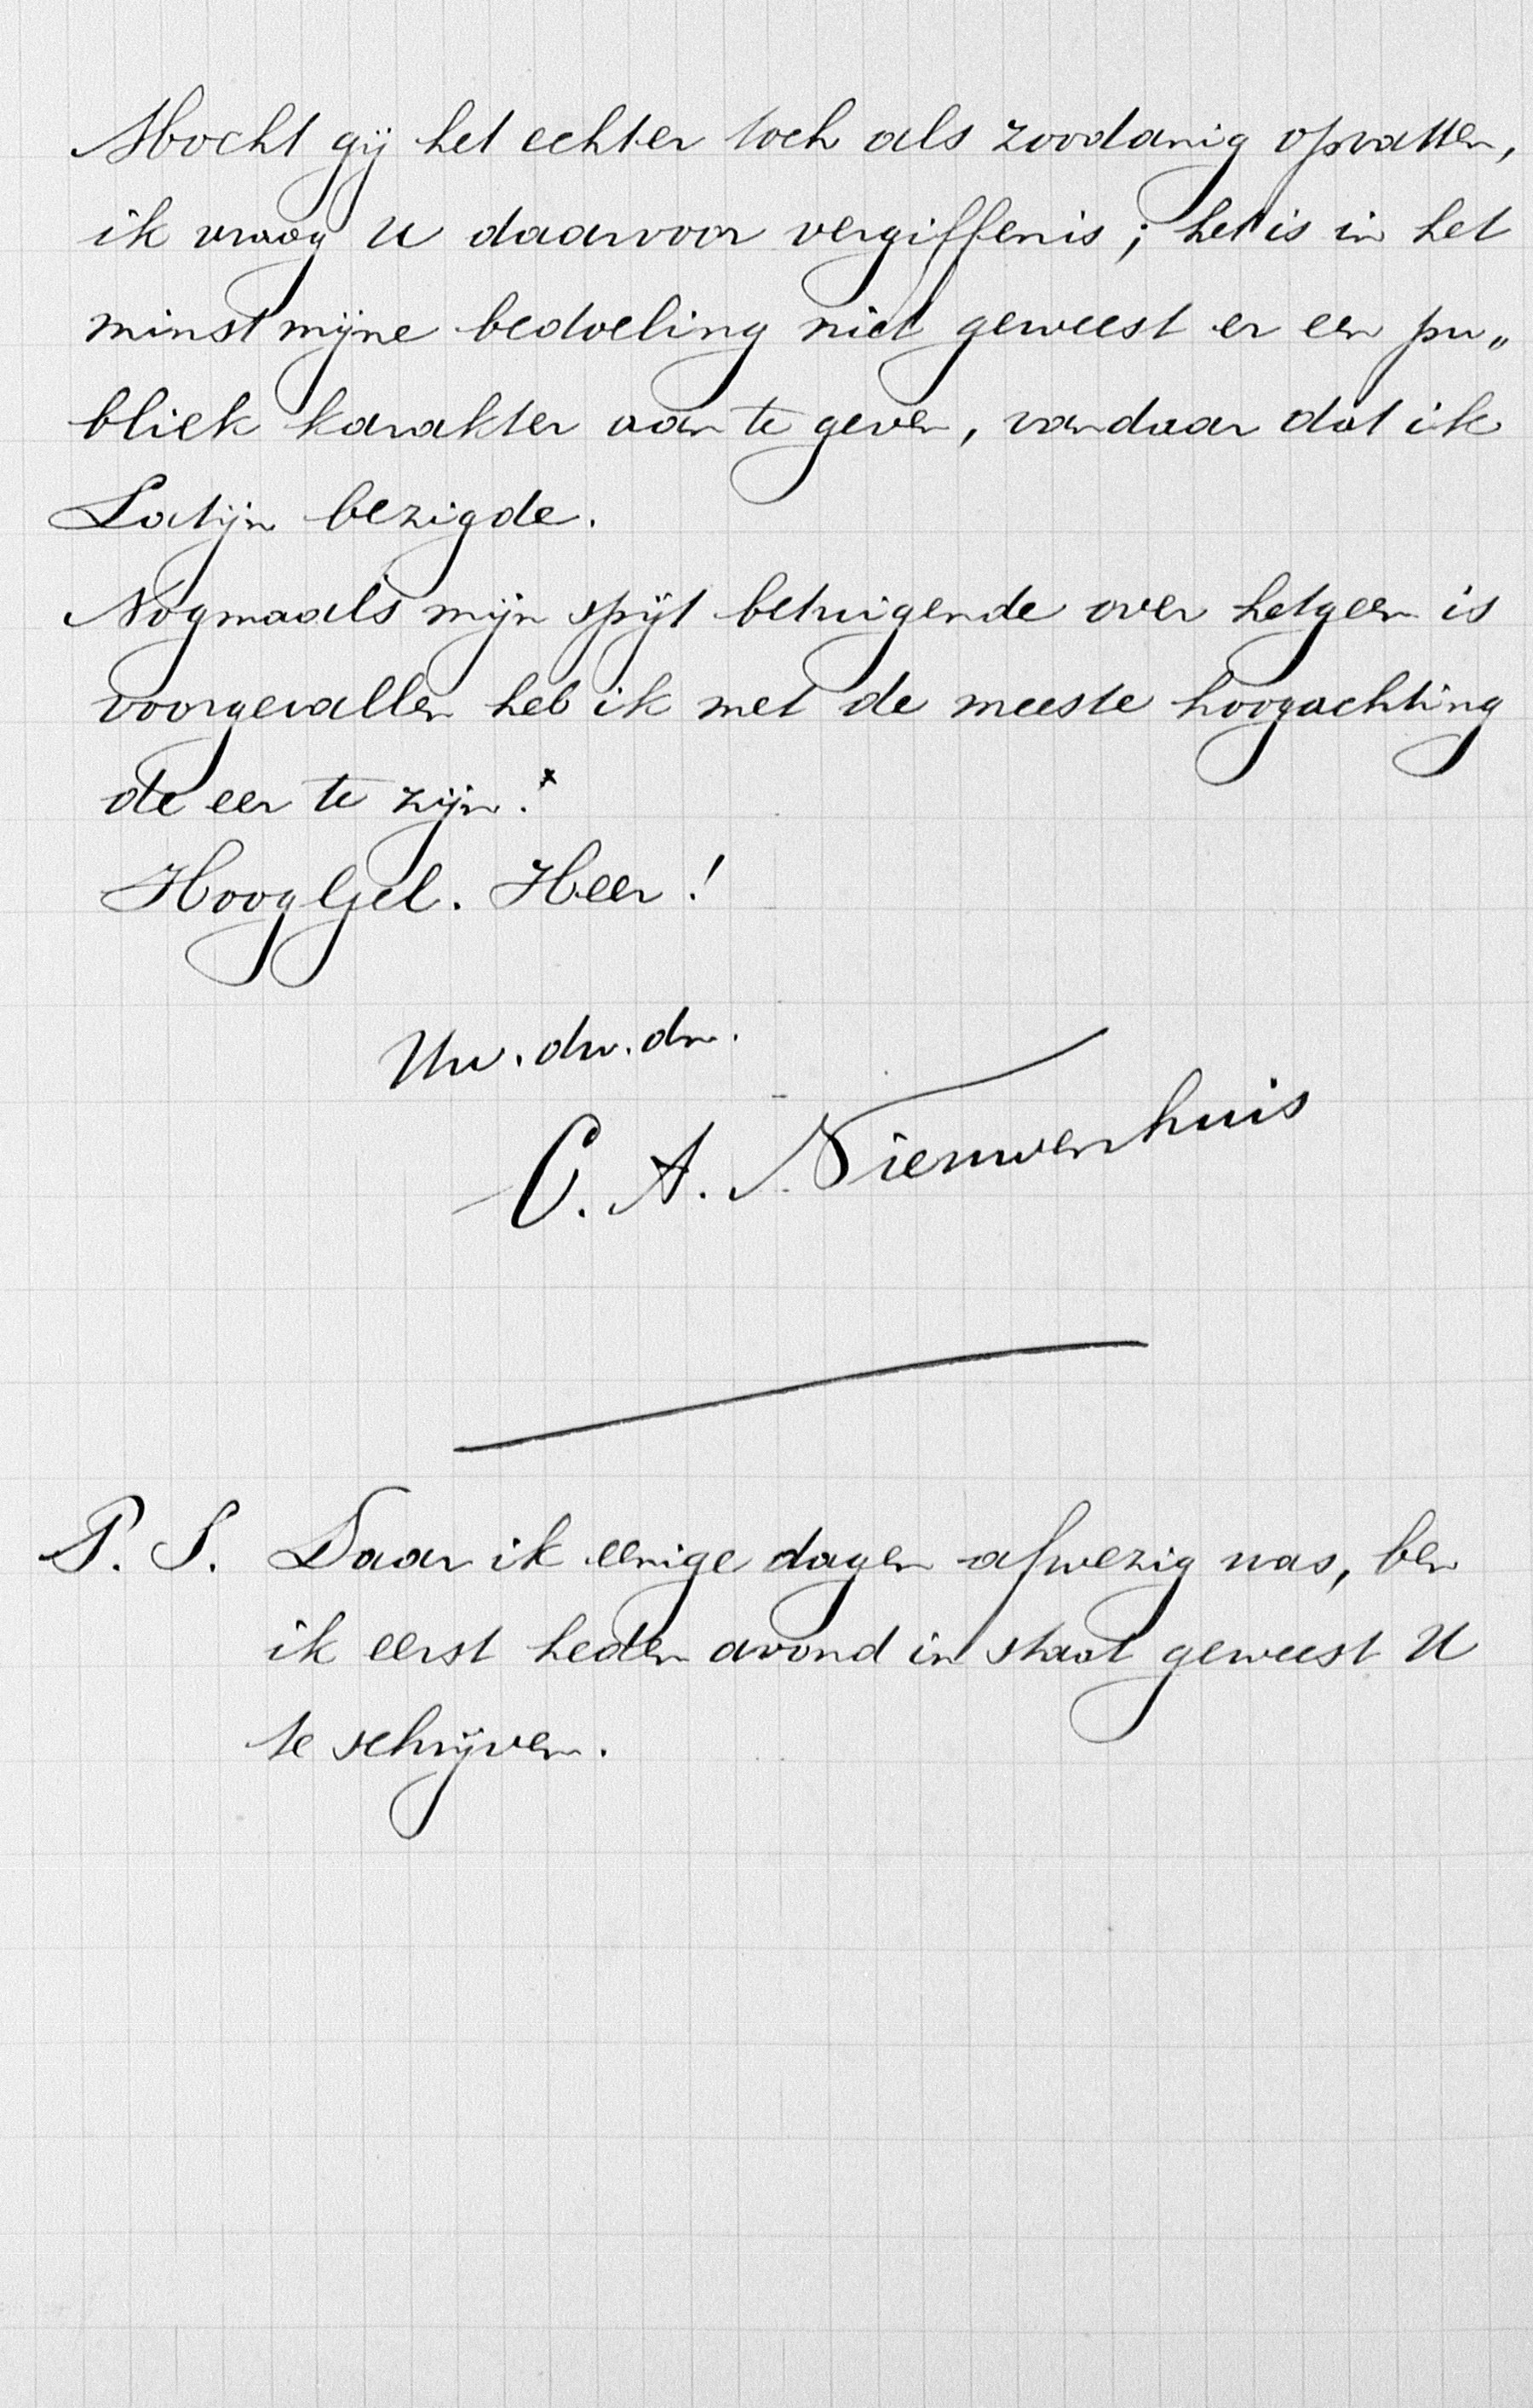 Mocht gij het echter toch als zoodanig opvatten,
ik vraag U daarvoor vergiffenis; het is in het
minst mijne bedoeling niet geweest er een pu„
bliek karakter aan te geven, vandaar dat ik
Latijn bezigde.
Nogmaals mijn spijt betuigende over hetgeen is
voorgevallen heb ik met de meeste hoogachting
de eer te zijn.x
HoogGel. Heer!
Uw. dw. dr.
C. A. Nieuwenhuis
P. S. Daar ik eenige dagen afwezig was, ben
ik eerst heden avond in staat geweest U
te schrijven.